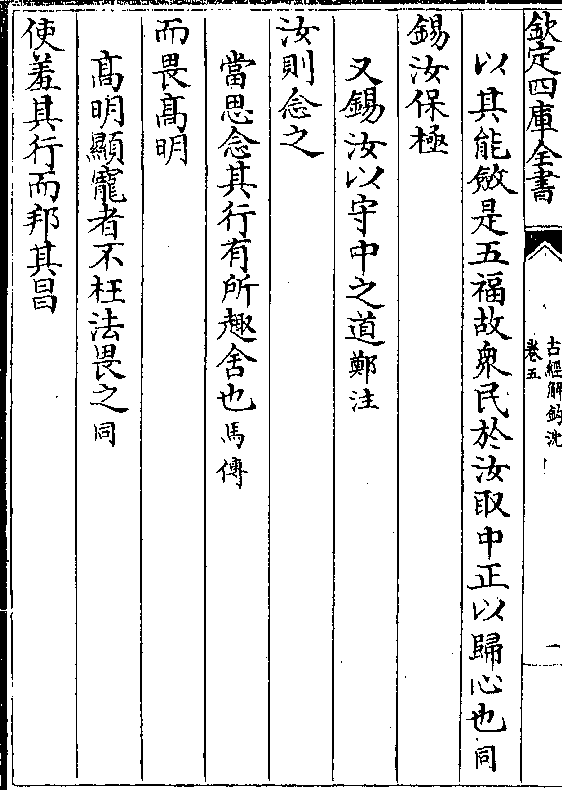 欽定四庫全書
古經解鈎沈
卷五
一
以其能斂是五福故衆民於汝取中正以歸心也同
錫汝保極
又錫汝以守中之道鄭注
汝則念之
當思念其行有所趣舍也馬傳
而畏髙明
髙明顯寵者不枉法畏之同
使羞其行而邦其昌